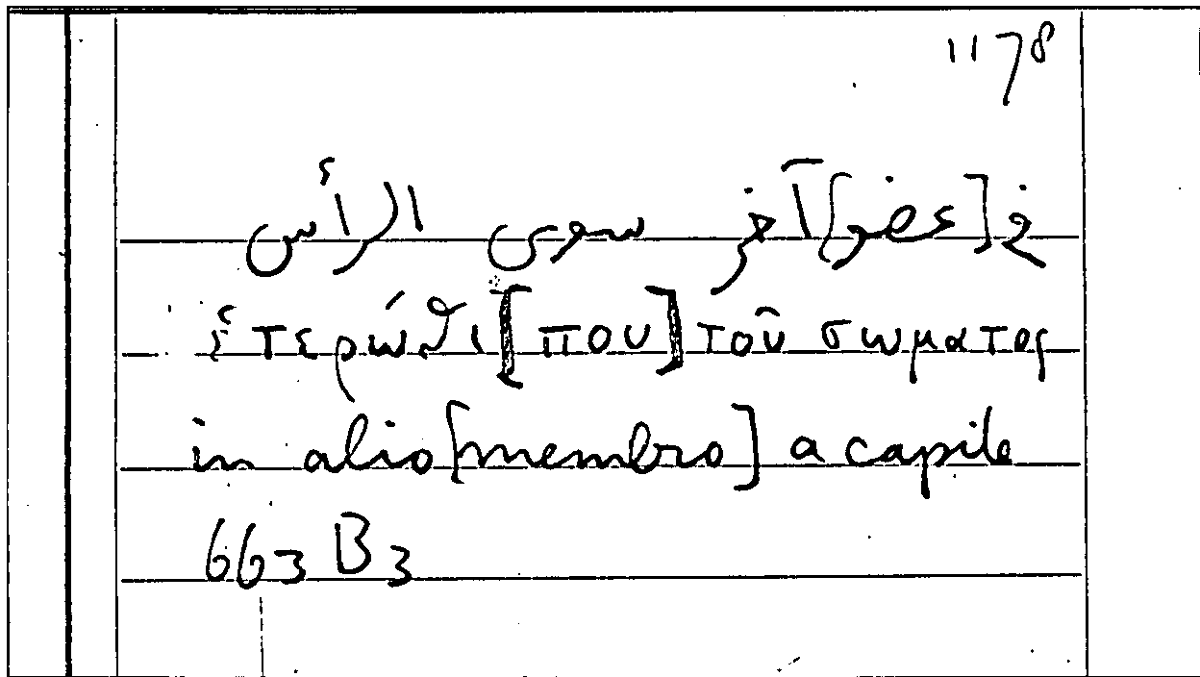 1178
في [عضو] آخر سوى الرأس
ἑτερώθι [που] τοῦ σωματος
in alio [membro] a capite
663 B 3